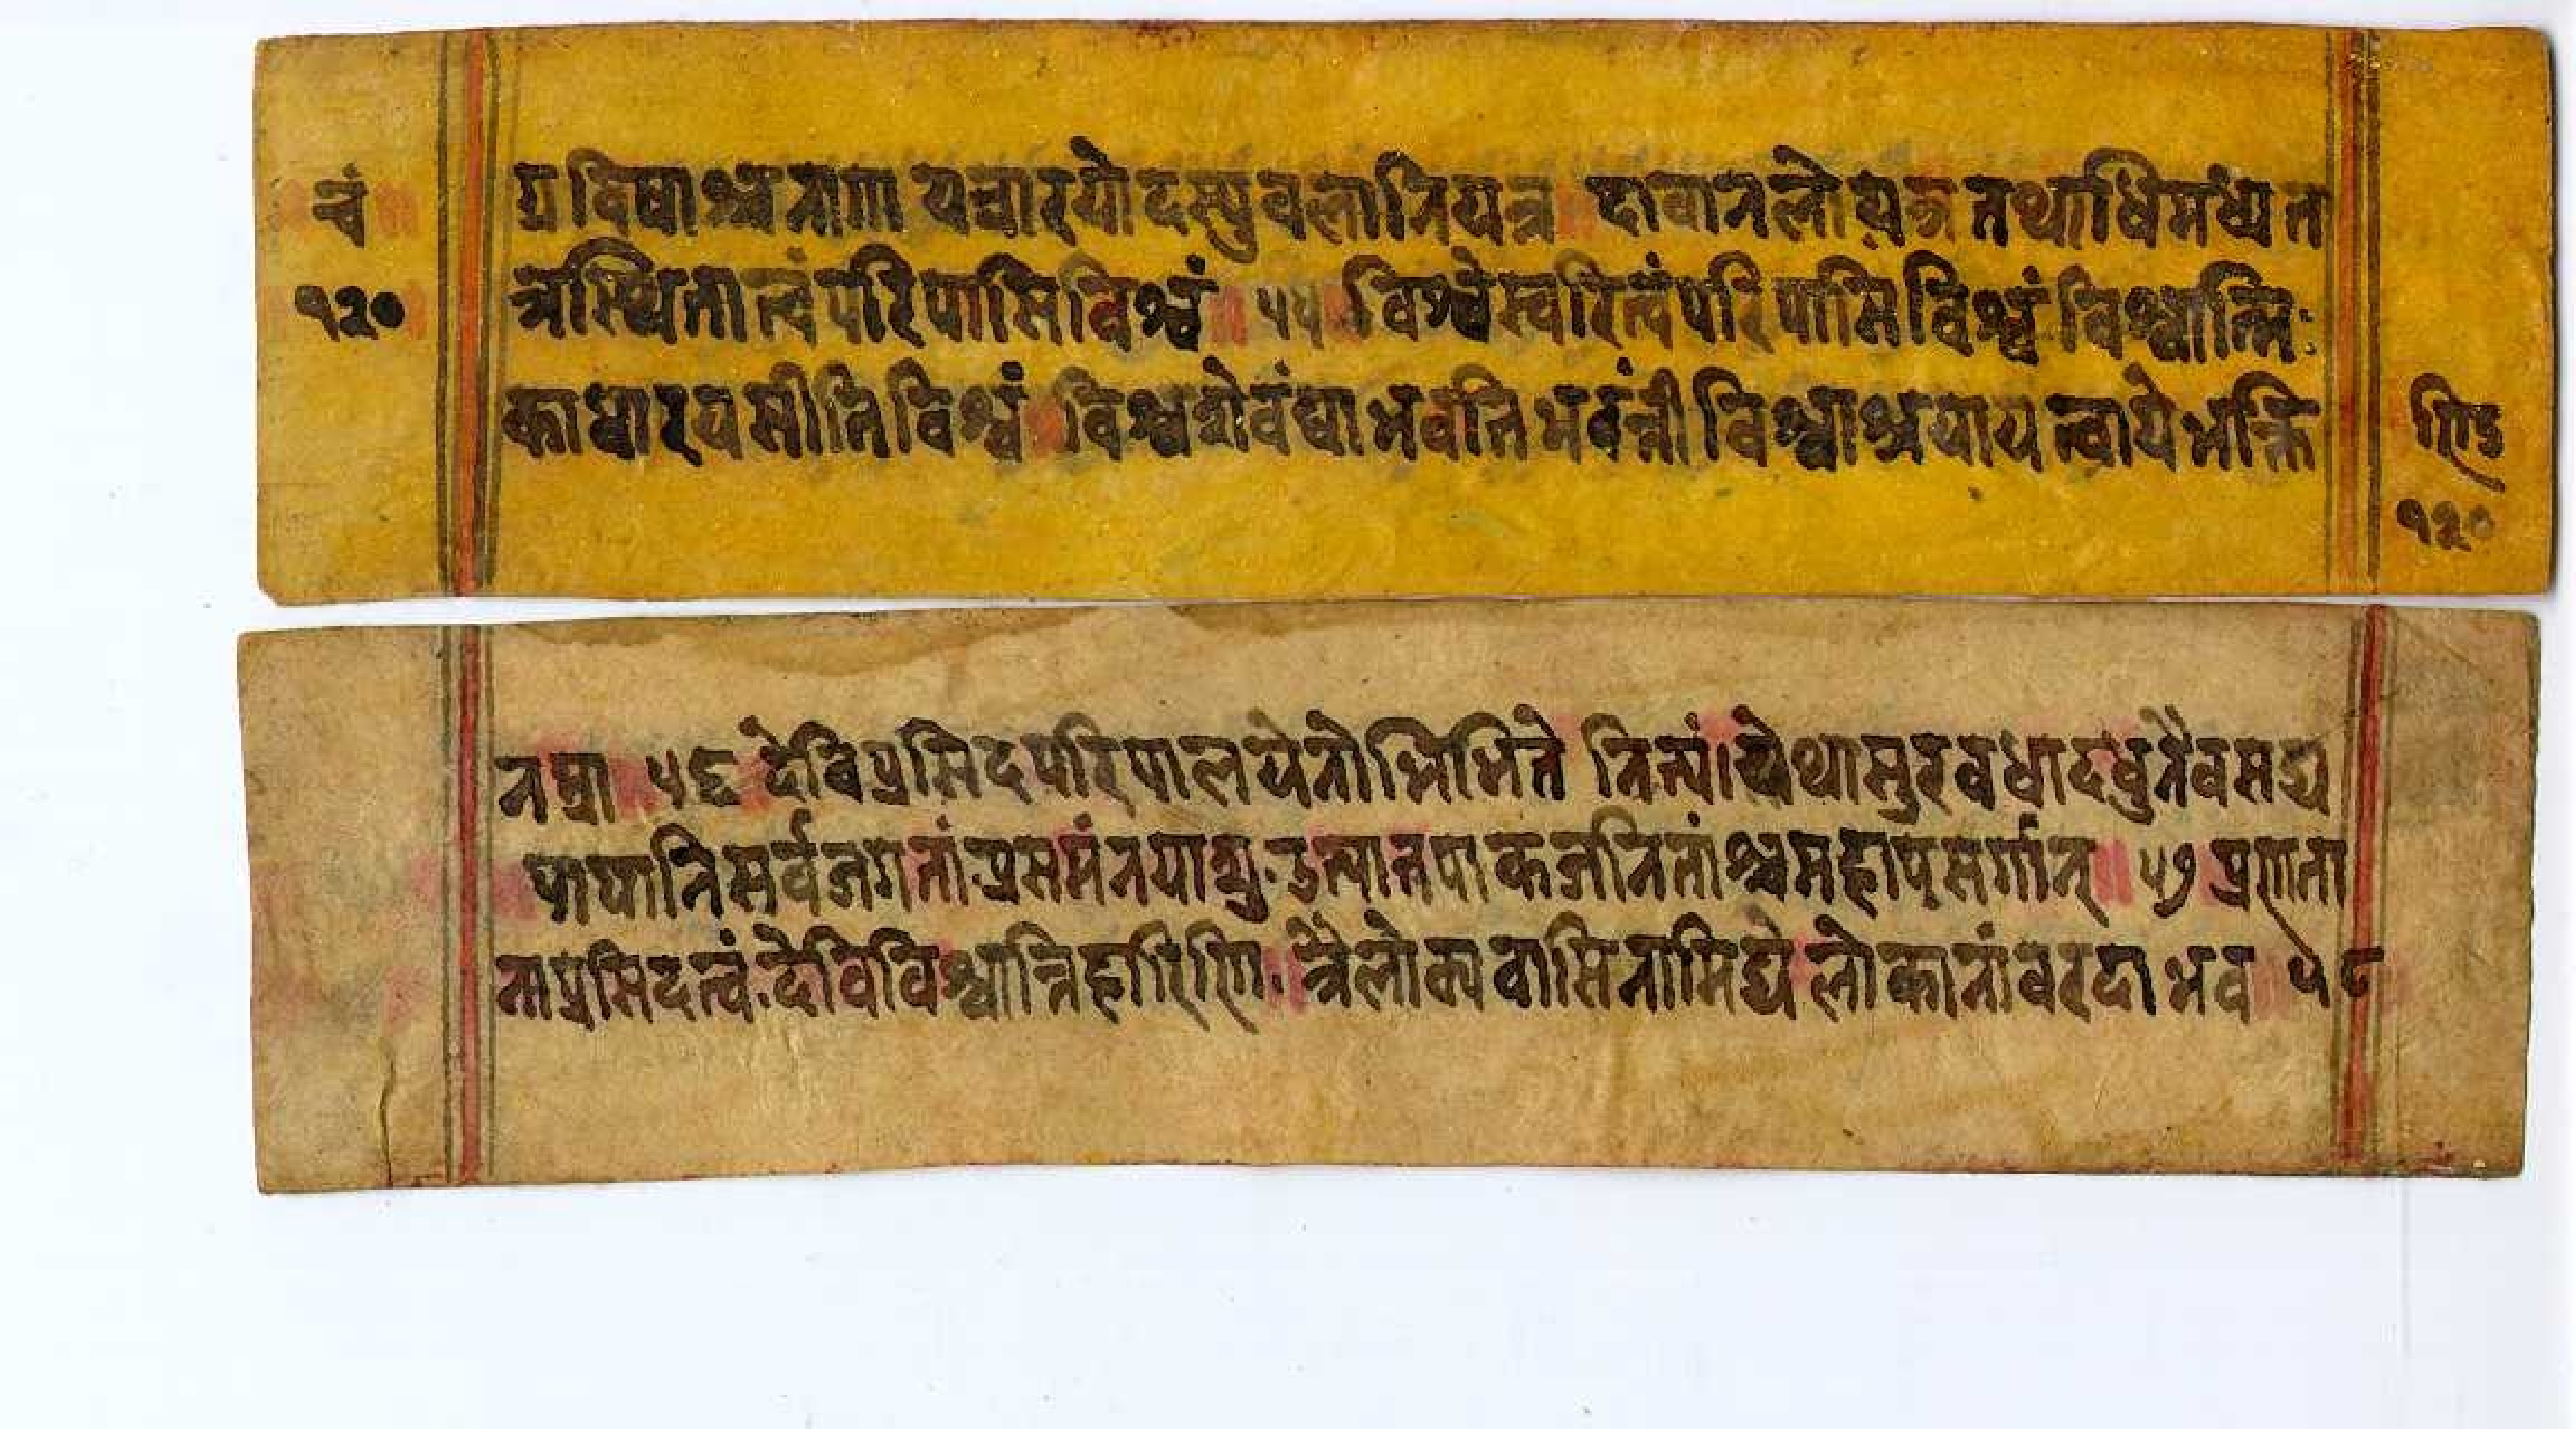 चं
१२०
ग्र विषाश्च नागा यत्रारयो दस्युवलानियत्र दावानलोयत्र तथाधिमध्य त
त्रस्थिता त्वं परिपासि विश्वं ५५ विश्वेस्वरित्वं परिपासि विश्वं विश्वात्मि
का धारयसीति विश्वं विश्वशेवंद्या भवति भवंत्ती विश्वाश्रयाय त्वाये भक्ति
ण्डि
१२०
नम्रा ५६ देवि प्रसिद परिपालयेनोभिभिते नित्यं यथासुरवधादधुनैव सद्य
पापानि सर्वजगतां प्रसमं नयाशु उत्पातपाकजनितांश्च महोपसर्गान् ५७ प्रणता
ना प्रसिद त्वं देवि विश्वार्त्तिहारिणि त्रैलोक्यवासिनामिद्ये लोकानां वरदा भव ५८